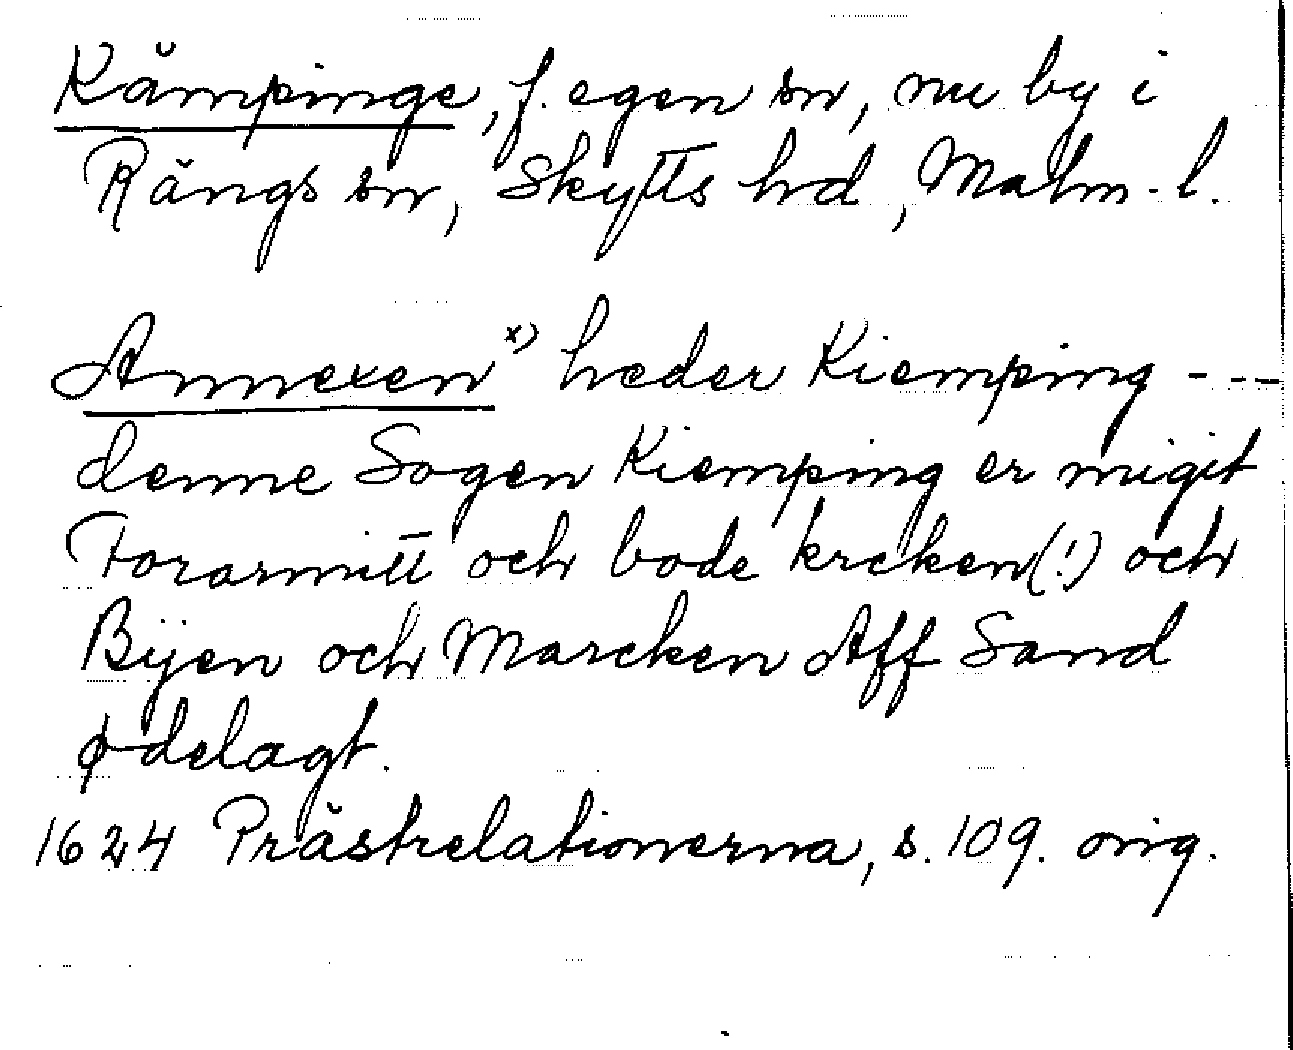 Kämpinge, f. egen sn, nu by i
Rängs sn, Skytts hd, Malm-l.
Annexen x) heder Kiemping ---
denne Sogen Kiemping er migit
Forarmitt och bode krcken(!) och
Bÿen och Marcken Aff Sand
ødelagt.
1624 Prästrelationerna, s. 109. orig.